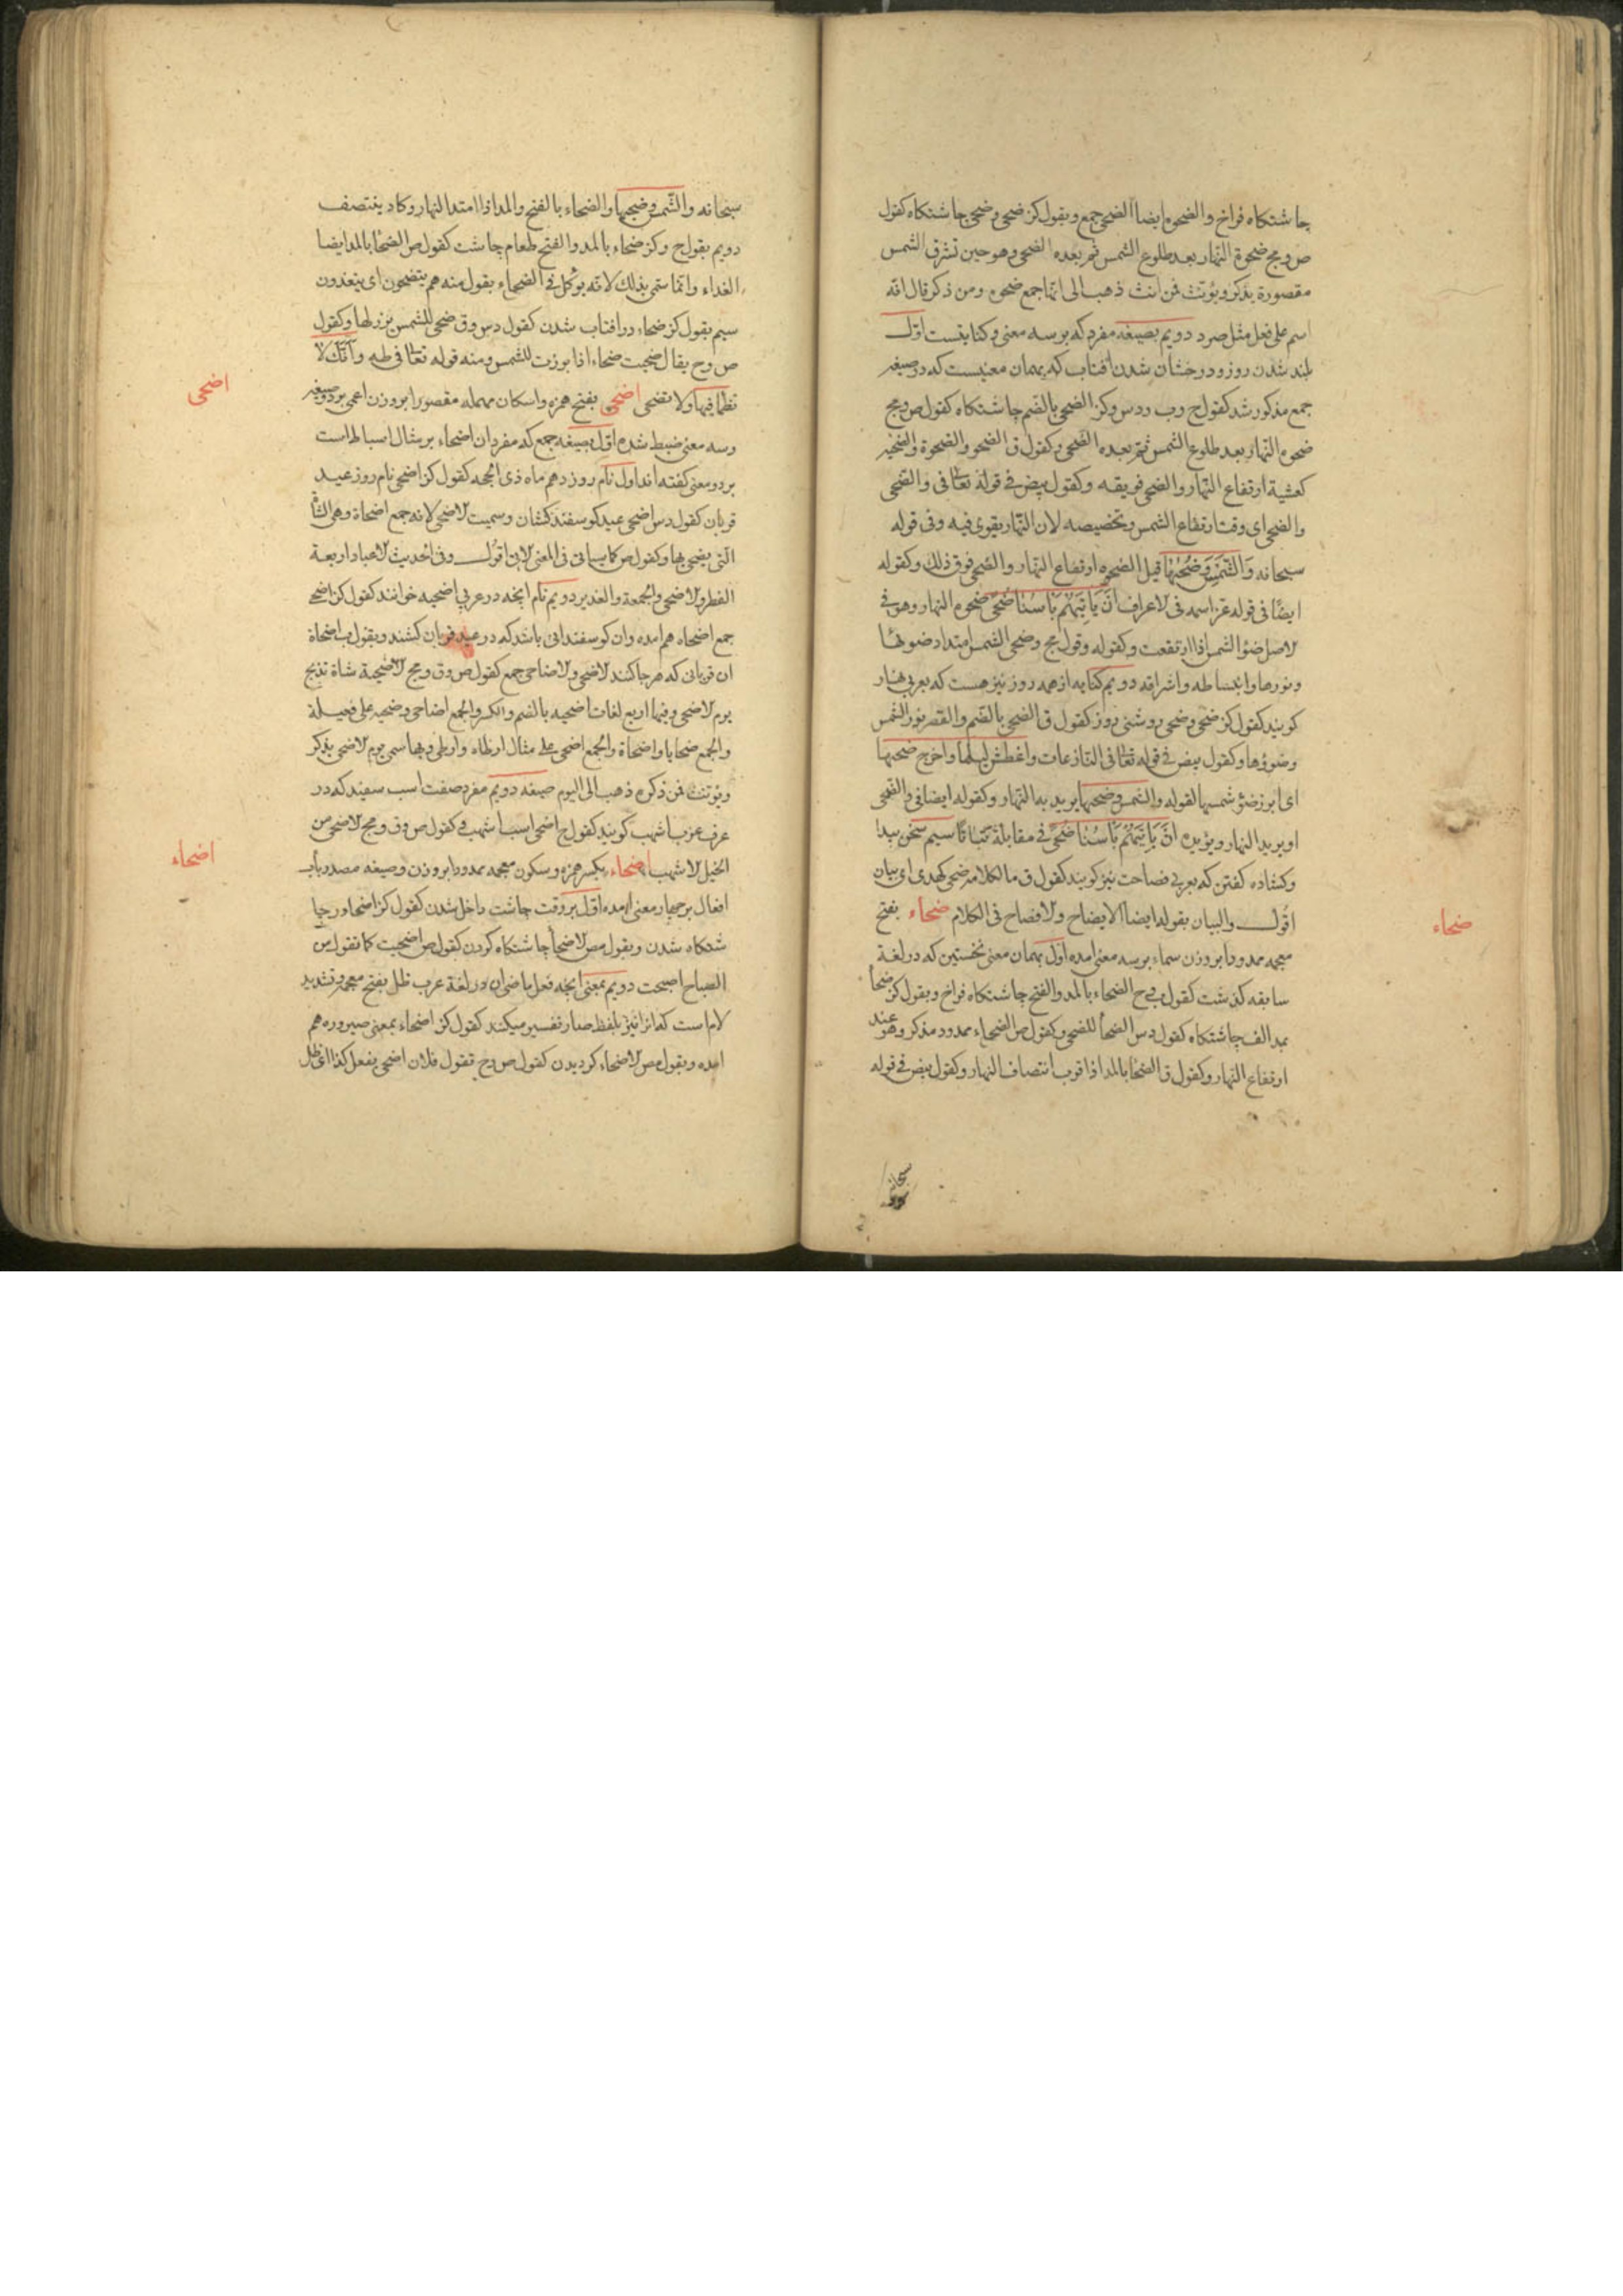 جاشتكاه فراخ والضحوه ايضا الضحى جمع وبقول كز ضحى وضحى جاشتكاه كقول
ص ومج ضحوة النهار بعد طلوع الشمس ثم بعده الضحى وهو حين تشرق الشمس
مقصورة يذكر ويؤنث فمن انث ذهب الى انها جمع ضحوه ومن ذكر قال انه
اسم على فعل مثل صرد دويم بصيغه مفرد كه برسه معنى وكنايتست اول
بلند شدن روز ودرخشان شدن افتاب كه بهمان معنيست كه در صيغه
جمع مذكور شد كقول ح وب ودس وكز الضحى بالضم جاشتكاه كقول ص ومج
ضحوه النهار بعد طلوع الشمس ثم بعده الضحى وكقول ق الضحو والضحوة والضحيه
كعشية ارتفاع النهار والضحى فويقه وكقول بيض فى قوله تعالى فى والضحى
والضحى اى وقت ارتفاع الشمس وتخصيصه لان النهار يقوى فيه وفى قوله
سبحانه وَالشَّمْسِ وَضُحٰيهَا قيل الضحوه ارتفاع النهار والضحى فوق ذلك وكقوله
ايضًا فى قوله عز اسمه فى لاعراف اَنْ يَاْتِيَهُمْ بَاْسُنَا ضُحًى ضحوه النهار وهو فى
لاصل ضؤ الشمس اذا ارتفعت وكقوله وقول مج وضحى الشمس امتداد ضوئها
ونورها وانبساطه واشراقه دويم كنايه از همه روز نيز هست كه بعربى نهار
كويند كقول كز ضحى وضحى روشنى روز كقول ق الضحى بالضم والقصر نور الشمس
وضوؤها وكقول بيض فى قوله تعالى فى النازعات واغطش ليلها واخرج ضحيها
اى ابرز ضؤ شمسها لقوله والشمس وضحيها يريد به النهار وكقوله ايضا فى والضحى
او يريد النهار ويؤيده اَنْ يَاْتِيَهُمْ بَاْسُنَا ضُحًى فى مقابلة بَيَاتًا سيم سخن پيدا
وكشاده كفتن كه بعربى فصاحت نيز كويند كقول ق ما لكلامه ضحى كهدى اى بيان
اقول والبيان بقوله ايضا الايضاح ولافصاح فى الكلام ضحاء بفتح
معجمه ممدودا بروزن سماء برسه معنى امده اول بهمان معنى نخستين كه در لغة
سابقه كذشت كقول ح الضحاء بالمد والفتح جاشتكاه فراخ وبقول كز ضحاء
بمد الف جاشتكاه كقول دس الضحا للضحى وكقول ص الضحاء ممدود مذكر وهو عند
ارتفاع النهار وكقول ق الضحا بالمد اذا قرب انتصاف النهار وكقول بيض فى قوله
ضحاء
سبحانه
سبحانه والشمس وضحيها والضحاء بالفتح والمد اذا امتد النهار وكاد ينتصف
دويم بقول ح وكز ضحاء بالمد والفتح طعام جاشت كقول ص الضحا بالمد ايضا
الغداء وانما سمى بذلك لانه يؤكل فى الضحاء بقول منه هم يتضحون اى يتغدون
سيم بقول كز ضحاء در افتاب شدن كقول دس وق ضحى للشمس برز لها وكقول
ص وح يقال ضحيت ضحاء اذا برزت للشمس ومنه قوله تعالى فى طه وَاَنَّكَ لَا
تظما فيها ولا تضحى اضحى بفتح همزه واسكان مهمله مقصورا بروزن اعمى بردو صيغه
وسه معنى ضبط شده اول بصيغه جمع كه مفرد ان اضحاء برمثال اسباط است
بردو معنى كفته اند اول نام روز دهم ماه ذى الحجه كقول كز اضحى نام روز عيد
قربان كقول دس اضحى عيد كوسفند كشان وسميت لاضحى لانه جمع اضحاة وهى الشاة
التى يضحى بها وكقول ص كما سياتى فى المعنى لاتى اقول وفى الحديث لاعياد اربعة
الفطر ولاضحى والجمعة والغدير دويم نام انچه در عربى اضحيه خوانند كقول كز اضحى
جمع اضحاه هم امده وان كوسفندانى باشد كه در عيد قربان كشند وبقول ب اضحاة
ان قربانى كه هر جا كنند لاضحى ولاضاحى جمع كقول ص وق ومج لاضحية شاة تذبح
يوم لاضحى وفيها اربع لغات اضحيه بالضم والكسر والجمع اضاحى وضحيه على فعيلة
والجمع ضحايا واضحاة والجمع اضحى على مثال ارطاه وارطى وبها سمى يوم لاضحى يذكر
ويؤنث فمن ذكره ذهب الى اليوم صيغه دويم مفرد صفت اسب سفيد كه در
عرف عرب اشهب كويند كقول ح اضحى اسب اشهب وكقول ص وق ومج لاضحى من
الخيل لاشهب اضحاء بكسر همزه وسكون معجمه ممدودا بروزن وصيغه مصدر باب
افعال برچهار معنى امده اول بروقت جاشت داخل شدن كقول كز اضحا در جا
شتكاه شدن وبقول مص لاضحا جاشتكاه كردن كقول ص اضحيت كما تقول من
الصباح اصبحت دويم بمعنى انچه فعل ماضى ان در لغة عرب ظل بفتح معجمه وتشديد
لام است كه انرا نيز بلفظ صار تفسير ميكنند كقول كز اضحاء بمعنى صيروره هم
امده وبقول مص لاضحاء كرديدن كقول ص وح تقول فلان اضحى يفعل كذا اى ظل
اضحى
اضحاء